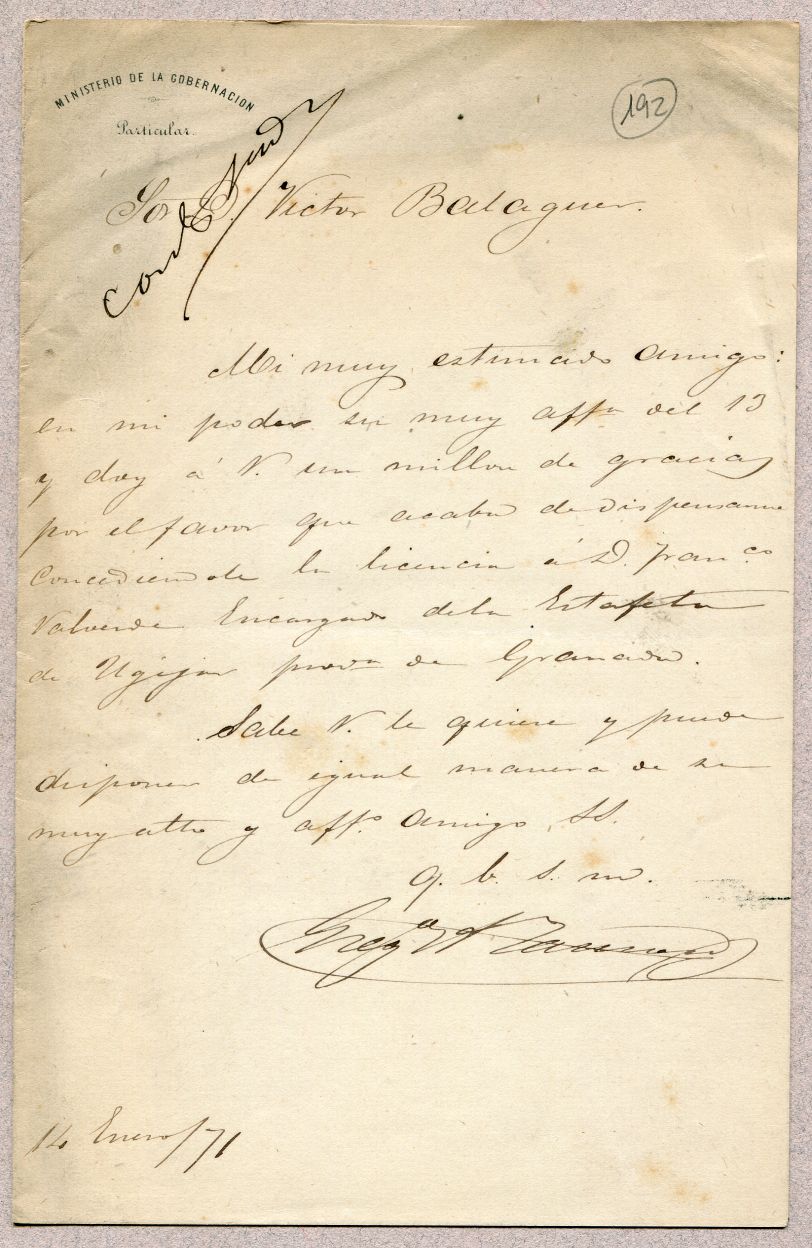 MINISTERIO DE LA GOBERNACION
Particular.
192
Sor D. Victor Balaguer.
Mi muy estimado amigo:
en mi poder su muy affa del 13
y doy á V. un millon de gracias
por el favor que acaba de dispensarme
concediendole la licencia á D. Franco
Valverde Encargado dela Estafeta
de Ugijar prova de Granada.
Sabe V. le quiere y puede
disponer de igual manera de su
muy atto y affo amigo SS.
q. b. s. m.
14 Enero/71